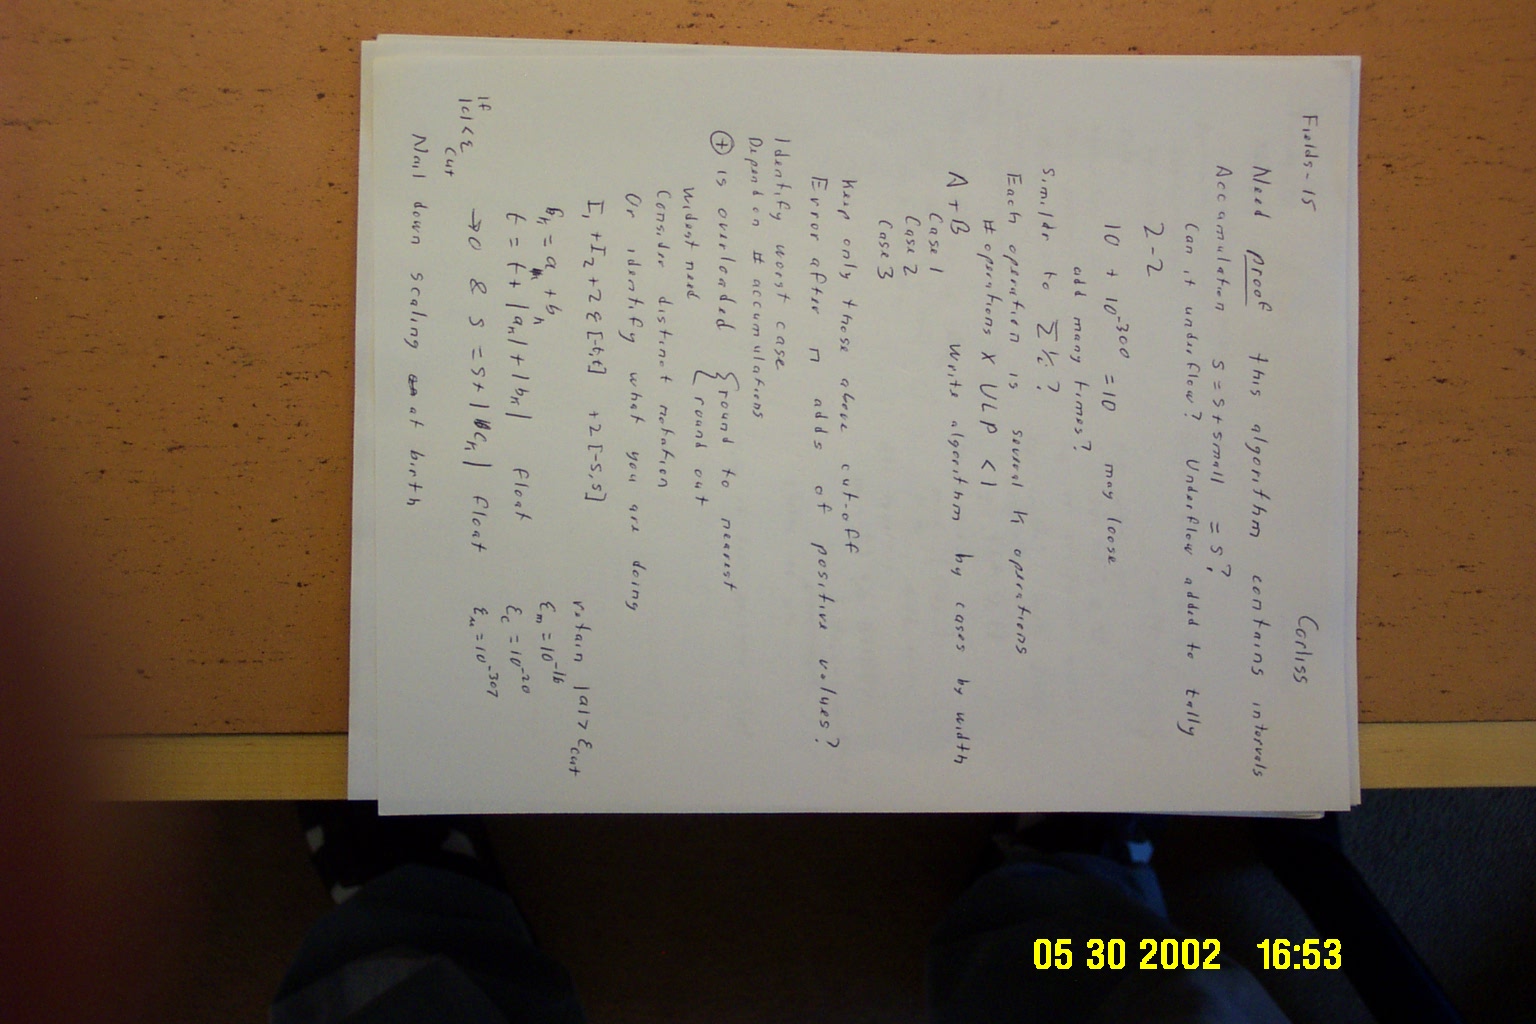 Fields-15 Corliss
Need proof this algorithm contains intervals
Accumulation s = s + small = s?
Can it underflow? Underflow added to tally
2-2
10 + 10^-300 = 10 may loose
add many times?
Similar to Σ 1/i ?
Each operation is several k operations
# operations x ULP < 1
A + B write algorithm by cases by width
Case 1
Case 2
Case 3
Keep only those above cut-off
Error after n adds of positive values?
Identify worst case
Depend on # accumulations
⊕ is overloaded { round to nearest
{ round out
widest need
Consider distinct notation
Or identify what you are doing
I₁ + I₂ + 2ε[-t,t] + 2[-s,s] retain |a| > ε_cut
= a + b_k ε_m = 10^-16
t = t + |a_k| + |b_k| float ε_c = 10^-20
if |c| < ε_cut → 0 & s = s + |c_k| float ε_u = 10^-307
Nail down scaling at birth
05 30 2002 16:53